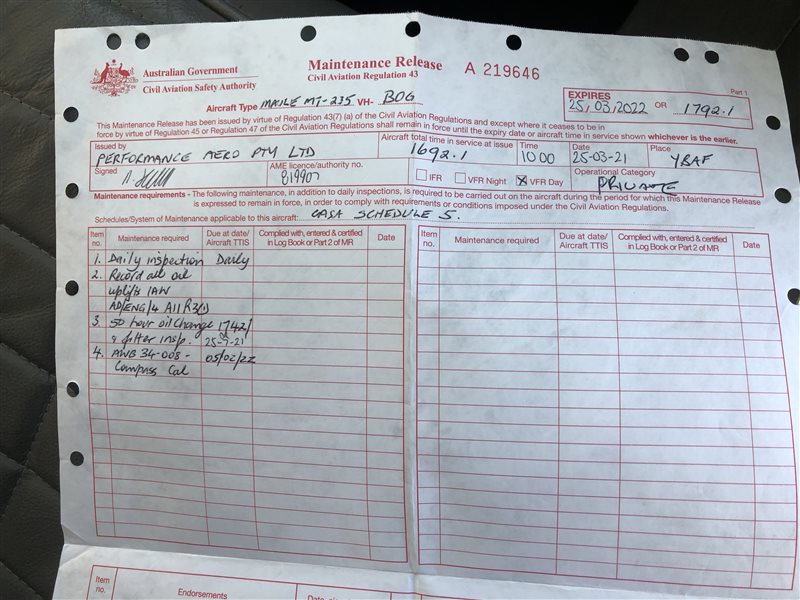 Australian Government
Civil Aviation Safety Authority
Maintenance Release
Civil Aviation Regulation 43
A 219646
Part 1
Aircraft Type MAULE MT-235 VH- BOG
EXPIRES
25, 03, 2022 OR 1792.1
This Maintenance Release has been issued by virtue of Regulation 43(7) (a) of the Civil Aviation Regulations and except where it ceases to be in
force by virtue of Regulation 45 or Regulation 47 of the Civil Aviation Regulations shall remain in force until the expiry date or aircraft time in service shown whichever is the earlier.
Issued by
PERFORMANCE AERO PTY LTD
Aircraft total time in service at issue
1692.1
Time
1000
Date
25-03-21
Place
YBAF
Signed
AME licence/authority no.
819907
IFR
VFR Night
X VFR Day
Operational Category
PRIVATE
Maintenance requirements - The following maintenance, in addition to daily inspections, is required to be carried out on the aircraft during the period for which this Maintenance Release
is expressed to remain in force, in order to comply with requirements or conditions imposed under the Civil Aviation Regulations.
Schedules/System of Maintenance applicable to this aircraft: CASA SCHEDULE 5.
Item no. Maintenance required Due at date/ Aircraft TTIS Complied with, entered & certified in Log Book or Part 2 of MR Date
Item no. Maintenance required Due at date/ Aircraft TTIS Complied with, entered & certified in Log Book or Part 2 of MR Date
1. Daily inspection Daily
2. Record all oil
uplifts IAW
AD/ENG/4 A11 R3(1)
3. 50 hour oil change 1742/
& filter insp. 25-7-21
4. AWB 34-008 - 05/02/22
Compass Cal
Item no. Endorsements